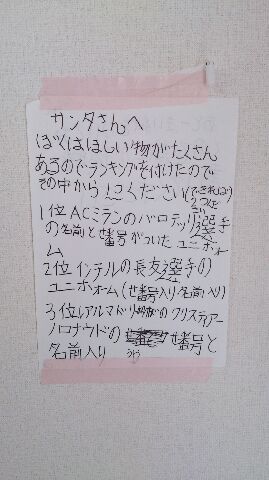 サンタさんへ
ぼくはほしい物がたくさん
あるのでランキングを付けたので
その中から1こください(できれば
2つください)
1位 ACミランのバロテッリ選手
の名前と背番号がついたユニホォー
ム
2位 インテルの長友選手の
ユニホォーム(背番号入り名前入り)
3位レアルマドリードのクリスティアー
ノロナウドの背番号と
名前入り